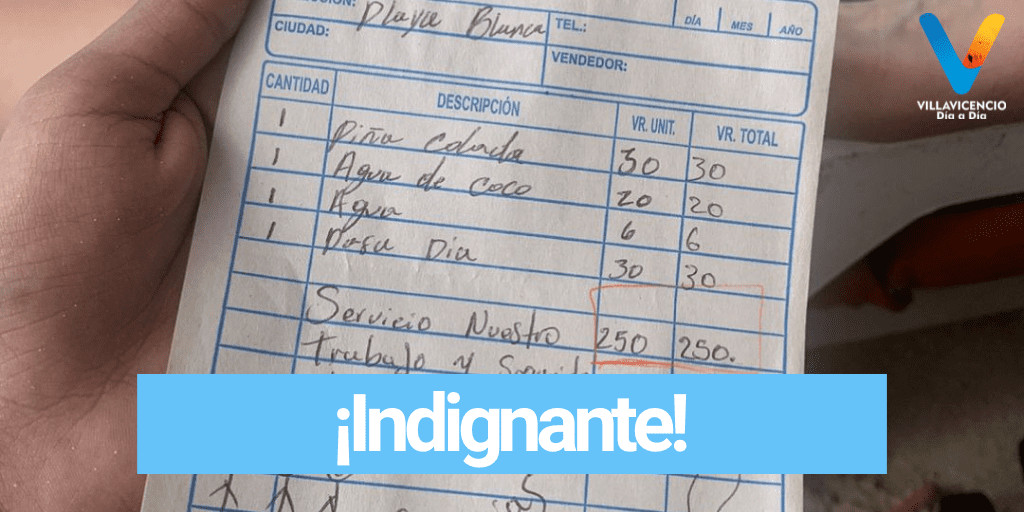 CIÓN: Playa Blanca
CIUDAD:
TEL.:
DÍA MES AÑO
VENDEDOR:
VILLAVICENCIO
Día a Día
CANTIDAD DESCRIPCIÓN VR. UNIT. VR. TOTAL
1 Piña Colada 30 30
1 Agua de coco 20 20
1 Agua 6 6
1 Pasa Dia 30 30
Servicio Nuestro 250 250.
trabajo y
¡Indignante!